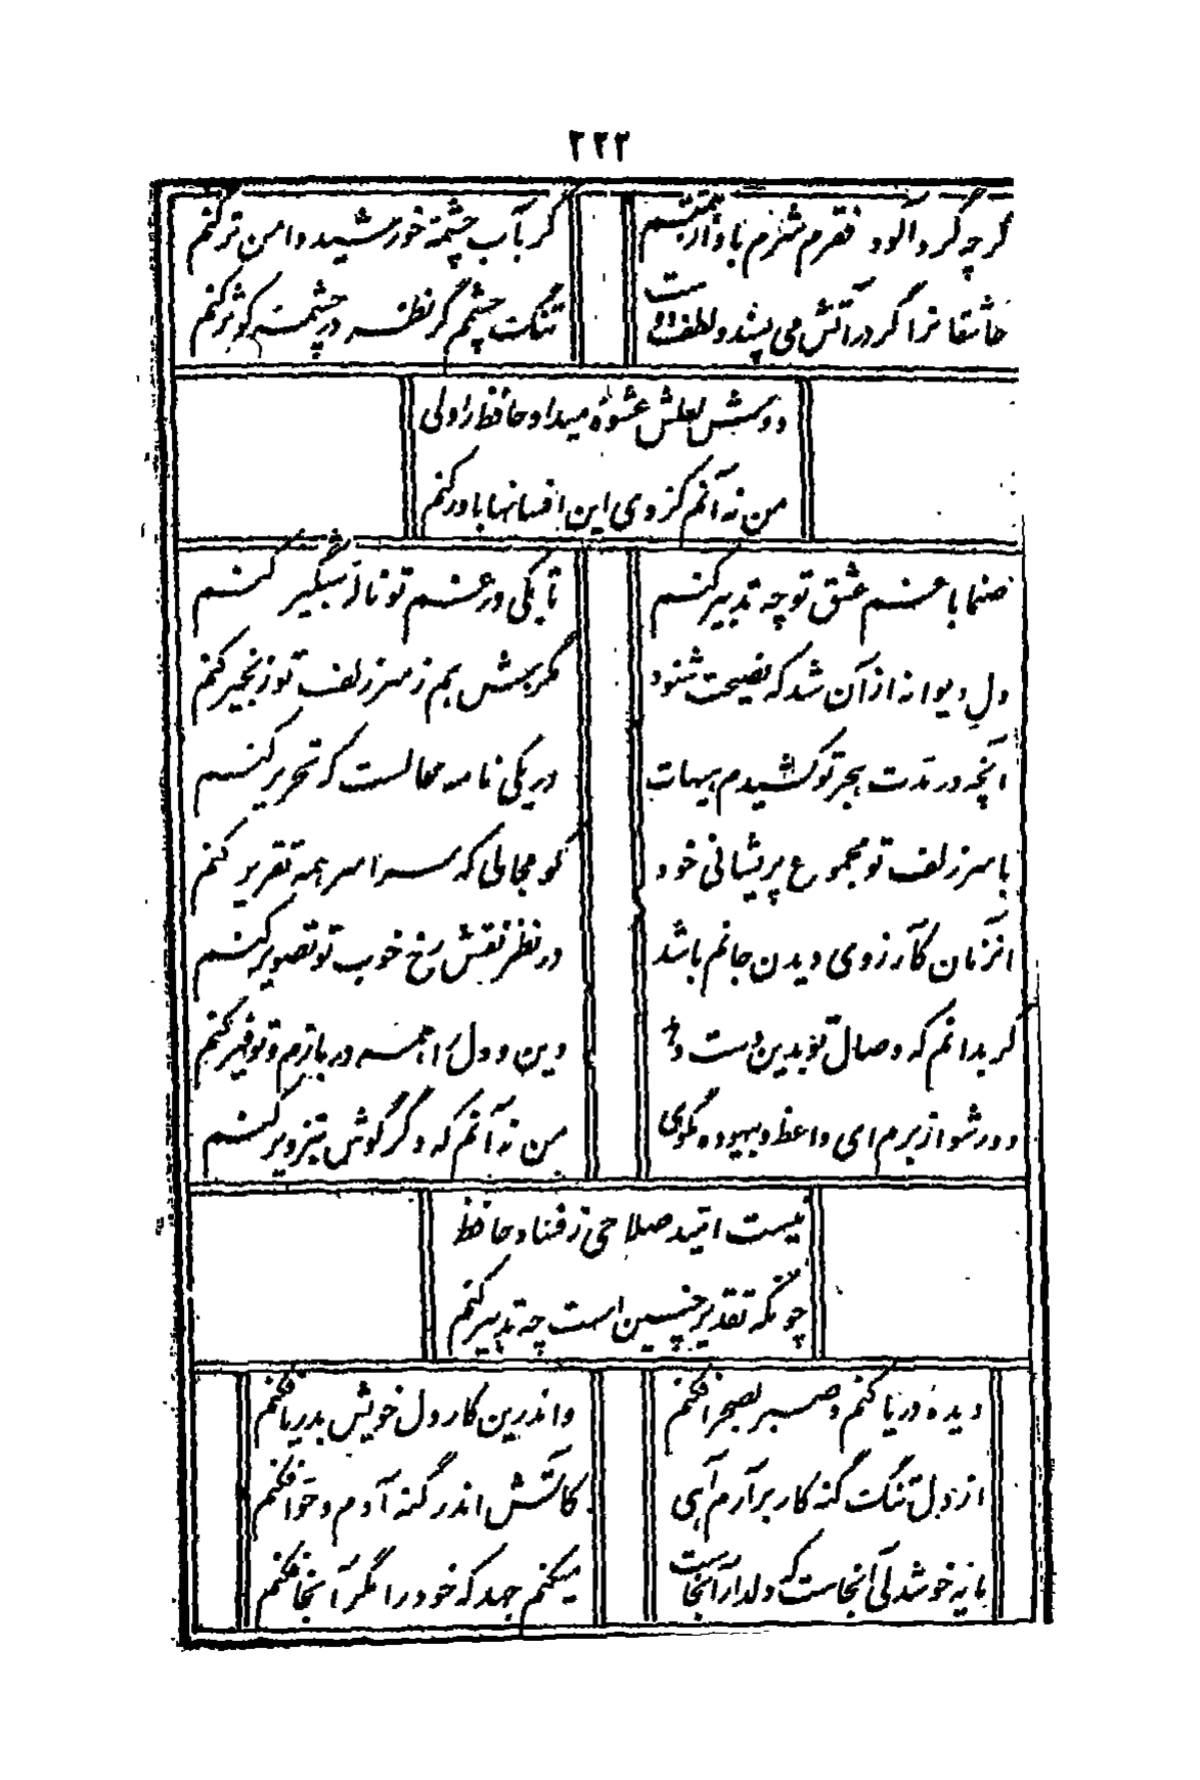 ۲۲۲
گرچه گرد آلود فقرم شرم باد از همتم
گر بآب چشمهٔ خورشید دامن تر کنم
عاشقانرا گر در آتش می پسندد لطف دوست
تنگ چشمم گر نظر در چشمهٔ کوثر کنم
دوش لعلش عشوهٔ میداد حافظ را ولی
من نه آنم کز وی این افسانها باور کنم
صنما با غم عشق تو چه تدبیر کنم
تا بکی در غم تو ناله شبگیر کنم
دل دیوانه از آن شد که نصیحت شنود
مگرش هم ز سر زلف تو زنجیر کنم
آنچه در مدت هجر تو کشیدم هیهات
در یکی نامه محالست که تحریر کنم
با سر زلف تو مجموع پریشانی خود
کو مجالی که سراسر همه تقریر کنم
آنزمان کآرزوی دیدن جانم باشد
در نظر نقش رخ خوب تو تصویر کنم
گر بدانم که وصال تو بدین دست دهد
دین و دل را همه در بازم و توفیر کنم
دور شو از برم ای واعظ و بیهوده مگوی
من نه آنم که دگر گوش بتزویر کنم
نیست امید صلاحی ز فساد حافظ
چونکه تقدیر چنین است چه تدبیر کنم
دیده دریا کنم و صبر بصحرا فکنم
واندرین کار دل خویش بدریا فکنم
از دل تنگ گنه کار برآرم آهی
کآتش اندر گنه آدم و حوا فکنم
مایه خوشدلی آنجاست که دلدار آنجاست
میکنم جهد که خود را مگر آنجا فکنم